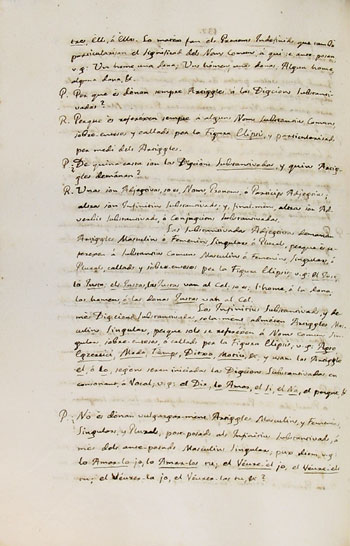 tres, Ell, ó Ella. Lo matex fan els Pronoms Indefinids, que
particularisan el significad del Nom Comun, á qui se ante-posan
v.g.: Un home, una dona; Uns hómens, unes dones. Algun home,
alguna dona, &.
P. Por que es dónan sempre Artiggles á les Diccions Substanti-
vades?
R. Porque es refereixen sempre á algun Nom Substantiu Comun,
sobre-entes y callad, per la Figura Elipsi, y particularisad
per medi dels Artiggles.
P. De quina casta son les Diccions Substantivades, y quins Artig-
gles demánan?
R. Unas son Adjectives, so es, Noms, Pronoms, ó Participis Adjectius;
altres son Infinitius Substantivads, y, finalment, altres son Ad-
verbis Substantivads, ó Conjuccions Substantivades.
Les Substantivades Adjectives demanan
Artiggles Masculins ó Femenins, Singulars ó Plurals, perque es re-
ferexen á Substantius Comuns Masculins ó Femenins, Singulars, ó
Plurals, callads y sobre-entesos per la Figura Elipsi, v.g. el Just,
la Justa, els Justs, las Justas van al Cel, so es, l'home, ó la dona,
los homens, ó las donas Justas van al Cel.
Los Infinitius Substantivads, y de-
més Diccions Substantivades, sols-ment admeten Artiggles Mas-
culins, Singulars, perque sols se refereixen á Noms Comuns Sin-
gulars, sobre-entesos, ó callads per la Figura Elipsi, v.g.
Exercici, Modo, Temps, Ditxo, Motiu, &. y usan los Artiggles
el, ó lo, segons seran iniciadas las Diccions Substantivades en
consonant, ó Vocal, v.g. el Dir, lo Amar, el Si, el No, el perque, &.
P. No es dónan vulgarment Artiggles Masculins, y Femenins,
Singulars, y Plurals, post-posads als Infinitius Substantivads, á
mes dels ante-posads Masculins Singulars, puix diem, v.g.
lo Amar-lo jo, lo Amar-los tu; el Veure-el jo, el Veure-els
tu; el Veures-la jo, el Veures-las tu, &.?